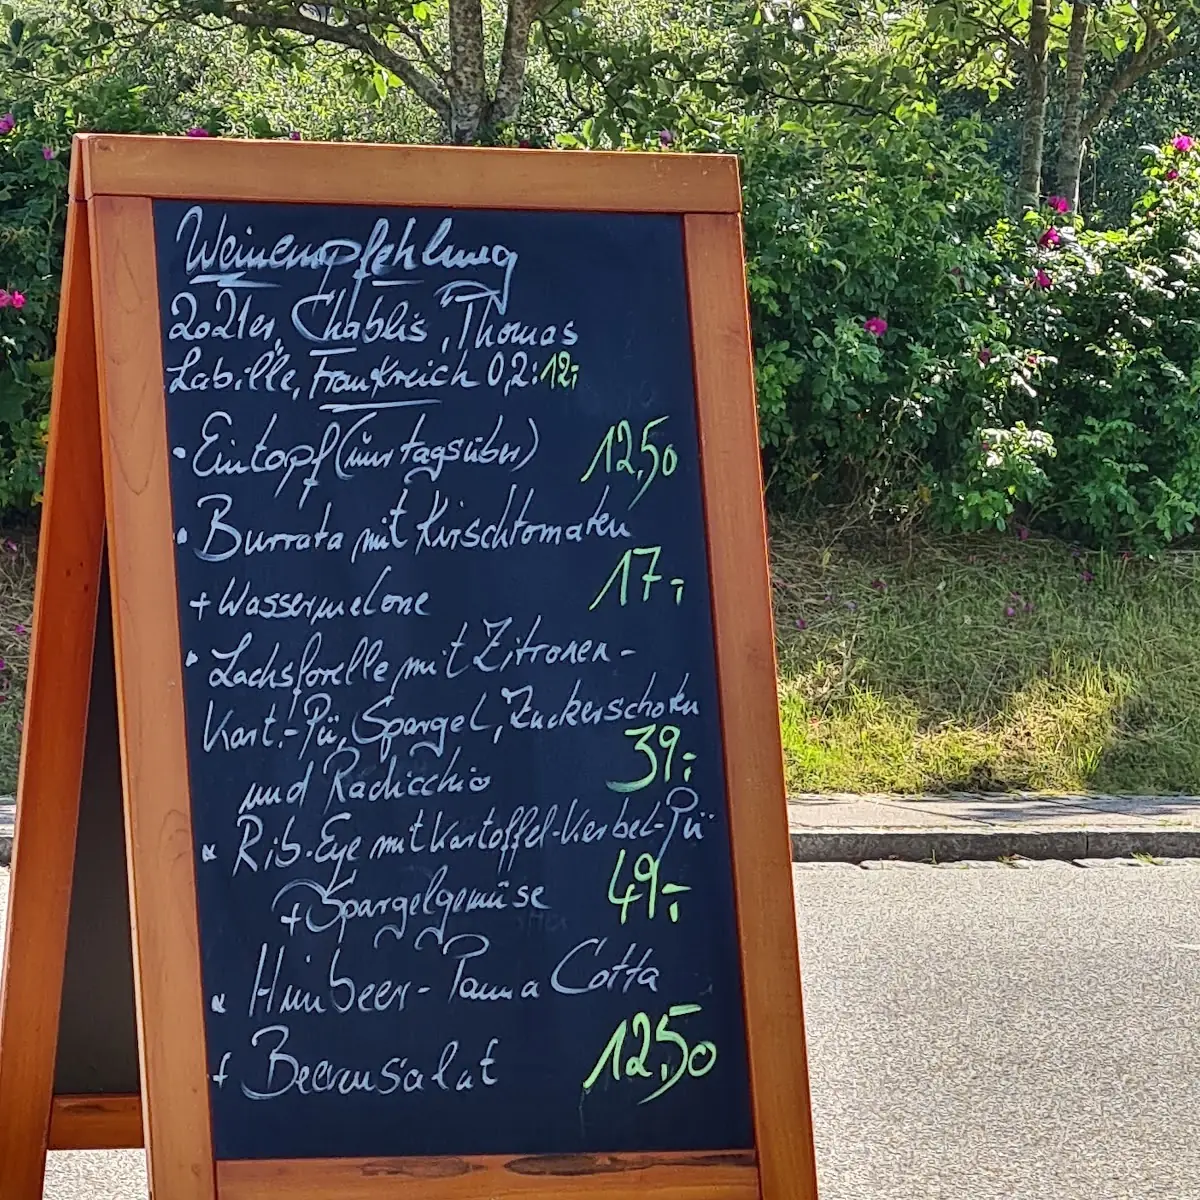 Weinempfehlung
2021er "Chablis", Thomas
Labille, Frankreich 0,2: 12,-
• Eintopf (nur tagsüber) 12,50
• Burrata mit Kirschtomaten
+ Wassermelone 17,-
• Lachsforelle mit Zitronen-
Kart.-Pü, Spargel, Zuckerschoten
und Radicchio 39,-
• Rib-Eye mit Kartoffel-Kerbel-Pü
+ Spargelgemüse 49,-
• Himbeer-Panna Cotta
+ Beerensalat 12,50